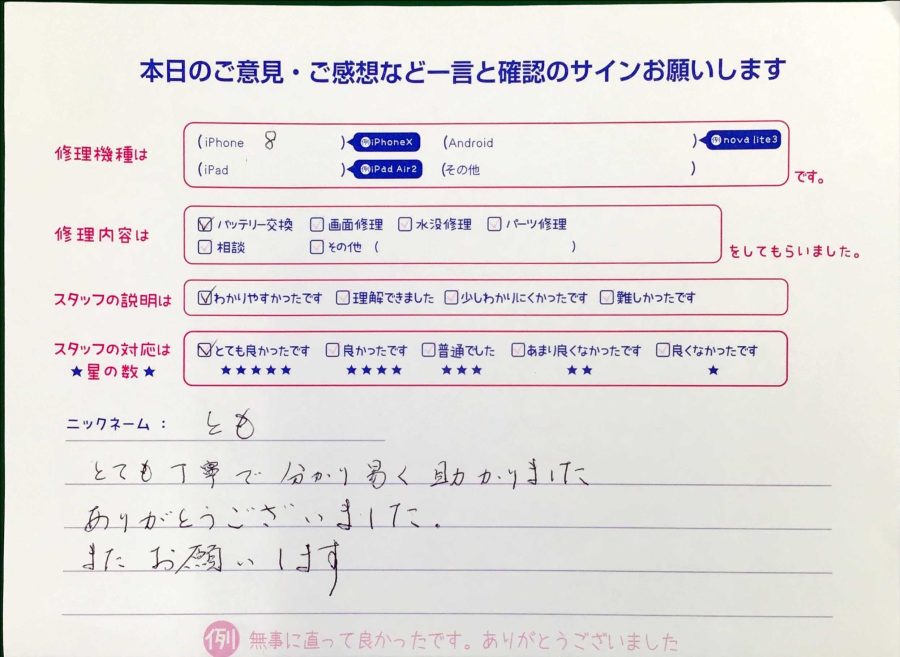 本日のご意見・ご感想など一言と確認のサインお願いします
修理機種は (iPhone 8 ) 例iPhoneX (Android ) 例nova lite3
(iPad ) 例iPad Air2 (その他 ) です。
修理内容は ☑バッテリー交換 □画面修理 □水没修理 □パーツ修理
□相談 □その他 ( ) をしてもらいました。
スタッフの説明は ☑わかりやすかったです □理解できました □少しわかりにくかったです □難しかったです
スタッフの対応は ☑とても良かったです □良かったです □普通でした □あまり良くなかったです □良くなかったです
★星の数★ ★★★★★ ★★★★ ★★★ ★★ ★
ニックネーム： とも
とても丁寧で分かり易く助かりました
ありがとうございました.
またお願いします
例 無事に直って良かったです。ありがとうございました